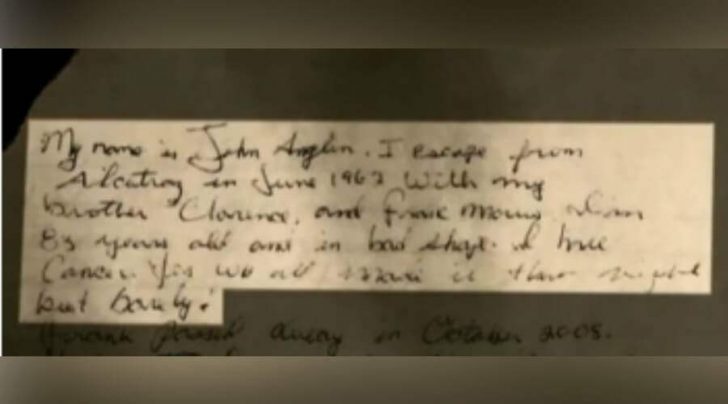 My name is John Anglin. I escape from
Alcatraz in June 1962 With my
brother Clarence, and Frank Morris. I'm
83 years old and in bad shape. I have
Cancer. Yes we all made it that night
but barely!
Frank passed away in October